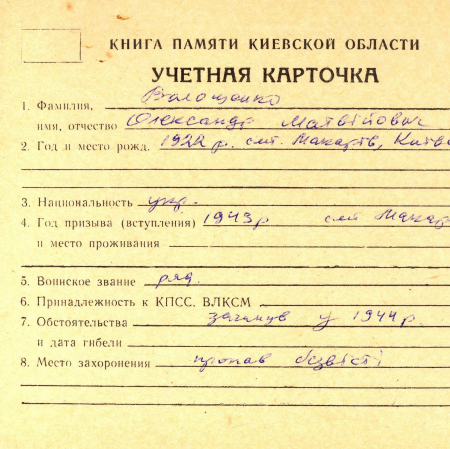 КНИГА ПАМЯТИ КИЕВСКОЙ ОБЛАСТИ
УЧЕТНАЯ КАРТОЧКА
1. Фамилия, Волощенко
имя, отчество Олександр Матвійович
2. Год и место рожд. 1922 р. смт. Макарів, Київс
3. Национальность укр.
4. Год призыва (вступления) 1943 р смт Макар
и место проживания
5. Воинское звание ряд.
6. Принадлежность к КПСС. ВЛКСМ
7. Обстоятельства загинув у 1944 р.
и дата гибели
8. Место захоронения пропав безвісті